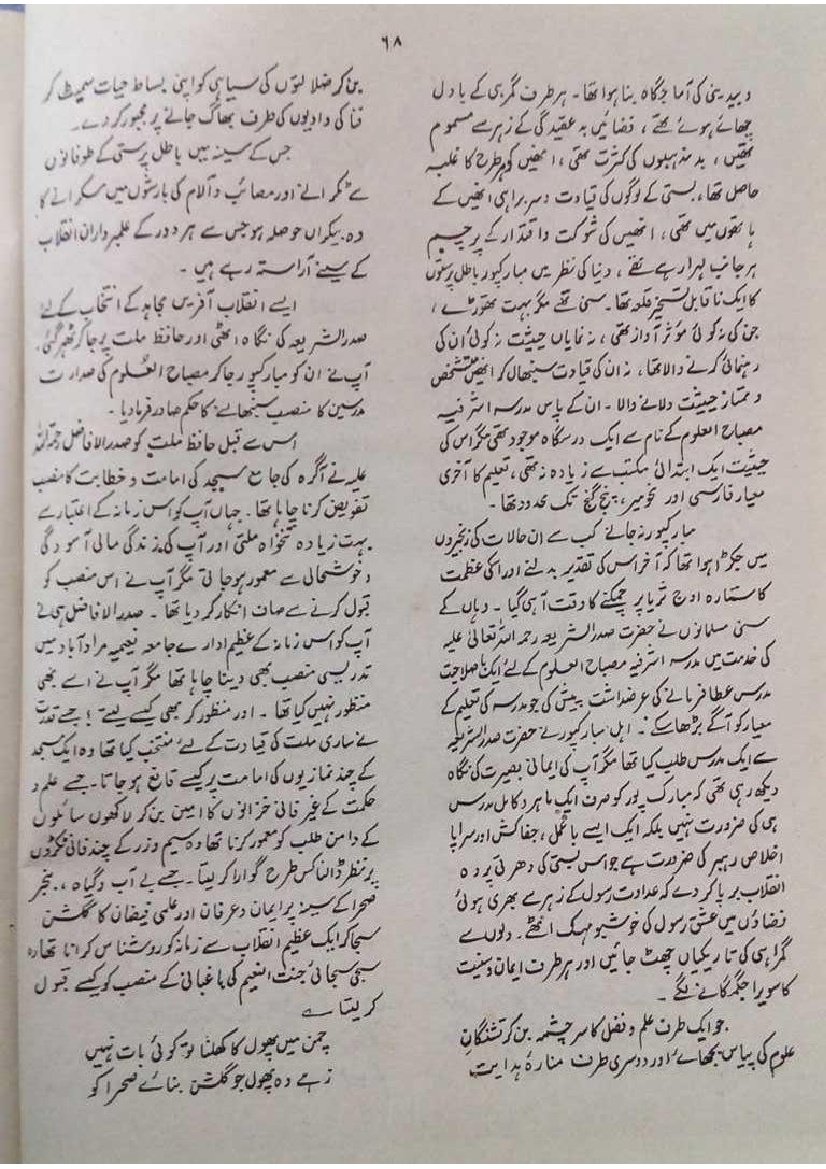 ۶۸
و بیدینی کی آماجگاہ بنا ہوا تھا۔ ہر طرف گمرہی کے بادل
چھائے ہوئے تھے، فضائیں بدعقیدگی کے زہر سے مسموم
تھیں، بد مذہبوں کی کثرت تھی، انھیں کو ہر طرح کا غلبہ
حاصل تھا، بستی کے لوگوں کی قیادت و سربراہی انھیں کے
ہاتھوں میں تھی، انھیں کی شوکت و اقتدار کے پرچم
ہر جانب لہرا رہے تھے، دنیا کی نظر میں مبارکپور باطل پرستوں
کا ایک ناقابل تسخیر قلعہ تھا۔ سنی تھے مگر بہت تھوڑے،
جن کی نہ کوئی مؤثر آواز تھی، نہ نمایاں حیثیت نہ کوئی ان کی
رہنمائی کرنے والا تھا، نہ ان کی قیادت سنبھال کو انھیں متشخص
و ممتاز حیثیت دلانے والا۔ ان کے پاس مدرسہ اشرفیہ
مصباح العلوم کے نام سے ایک درسگاہ موجود تھی مگر اس کی
حیثیت ایک ابتدائی مکتب سے زیادہ نہ تھی، تعلیم کا آخری
معیار فارسی اور نحومیر، پنج گنج تک محدود تھا۔
مبارکپور نہ جانے کب سے ان حالات کی زنجیروں
میں جکڑا ہوا تھا کہ آخر اس کی تقدیر بدلنے اور اسکی عظمت
کا ستارہ اوج ثریا پر چمکنے کا وقت آ ہی گیا۔ وہاں کے
سنی مسلمانوں نے حضرت صدر الشریعہ رحمہ اللہ تعالیٰ علیہ
کی خدمت میں مدرسہ اشرفیہ مصباح العلوم کے لئے ایک باصلاحیت
مدرس عطا فرمانے کی عرضداشت پیش کی جو مدرسہ کی تعلیم کے
معیار کو آگے بڑھا سکے۔ اہل مبارکپور نے حضرت صدر الشریعہ
سے ایک مدرس طلب کیا تھا مگر آپ کی ایمانی بصیرت کی نگاہ
دیکھ رہی تھی کہ مبارک پور کو صرف ایک ماہر و کامل مدرس
ہی کی ضرورت نہیں بلکہ ایک ایسے باعمل، جفاکش اور سراپا
اخلاص رہبر کی ضرورت ہے جو اس بستی کی دھرتی پر وہ
انقلاب برپا کر دے کہ عداوت رسول کے زہر سے بھری ہوئی
فضاؤں میں عشق رسول کی خوشبو مہک اٹھے۔ دلوں سے
گمراہی کی تاریکیاں چھٹ جائیں اور ہر طرف ایمان و سنیت
کا سویرا جگمگانے لگے۔
جو ایک طرف علم و فضل کا سرچشمہ بن کر تشنگانِ
علوم کی پیاس بجھائے اور دوسری طرف منارۂ ہدایت
بن کر ضلالتوں کی سیاہی کو اپنی بساط حیات سمیٹ کر
فنا کی وادیوں کی طرف بھاگ جانے پر مجبور کر دے۔
جس کے سینہ میں باطل پرستی کے طوفانوں
سے ٹکرانے اور مصائب و آلام کی بارشوں میں مسکرانے کا
وہ بیکراں حوصلہ ہو جس سے ہر دور کے علمبرداران انقلاب
کے سینے آراستہ رہے ہیں۔
ایسے انقلاب آفریں مجاہد کے انتخاب کے لئے
صدر الشریعہ کی نگاہ اٹھی اور حافظ ملت پر جا کر ٹھہر گئی،
آپ نے ان کو مبارکپور جا کر مصباح العلوم کی صدارت
مدرسین کا منصب سنبھالنے کا حکم صادر فرما دیا۔
اس سے قبل حافظ ملت کو صدر الافاضل رحمۃ اللہ
علیہ نے آگرہ کی جامع مسجد کی امامت و خطابت کا منصب
تفویض کرنا چاہا تھا۔ جہاں آپ کو اس زمانہ کے اعتبار سے
بہت زیادہ تنخواہ ملتی اور آپ کی زندگی مالی آسودگی
و خوشحالی سے معمور ہو جاتی مگر آپ نے اس منصب کو
قبول کرنے سے صاف انکار کر دیا تھا۔ صدر الافاضل ہی نے
آپ کو اس زمانہ کے عظیم ادارے جامعہ نعیمیہ مراد آباد میں
تدریسی منصب بھی دینا چاہا تھا مگر آپ نے اسے بھی
منظور نہیں کیا تھا۔ اور منظور کر بھی کیسے لیتے! جسے قدرت
نے ساری ملت کی قیادت کے لئے منتخب کیا تھا وہ ایک مسجد
کے چند نمازیوں کی امامت پر کیسے قانع ہو جاتا۔ جسے علم و
حکمت کے غیر فانی خزانوں کا امین بن کر لاکھوں سائلوں
کے دامن طلب کو معمور کرنا تھا وہ سیم و زر کے چند فانی ٹکڑوں
پر نظر ڈالنا کس طرح گوارا کر لیتا۔ جسے بے آب و گیاہ، بنجر
صحرا کے سینہ پر ایمان و عرفان اور علمی فیضان کا گلشن
سجا کر ایک عظیم انقلاب سے زمانہ کو روشناس کرانا تھا وہ
سجی سجائی جنت النعیم کی باغبانی کے منصب کو کیسے قبول
کر لیتا ؎
چمن میں پھول کا کھلنا تو کوئی بات نہیں
زہے وہ پھول جو گلشن بنائے صحرا کو